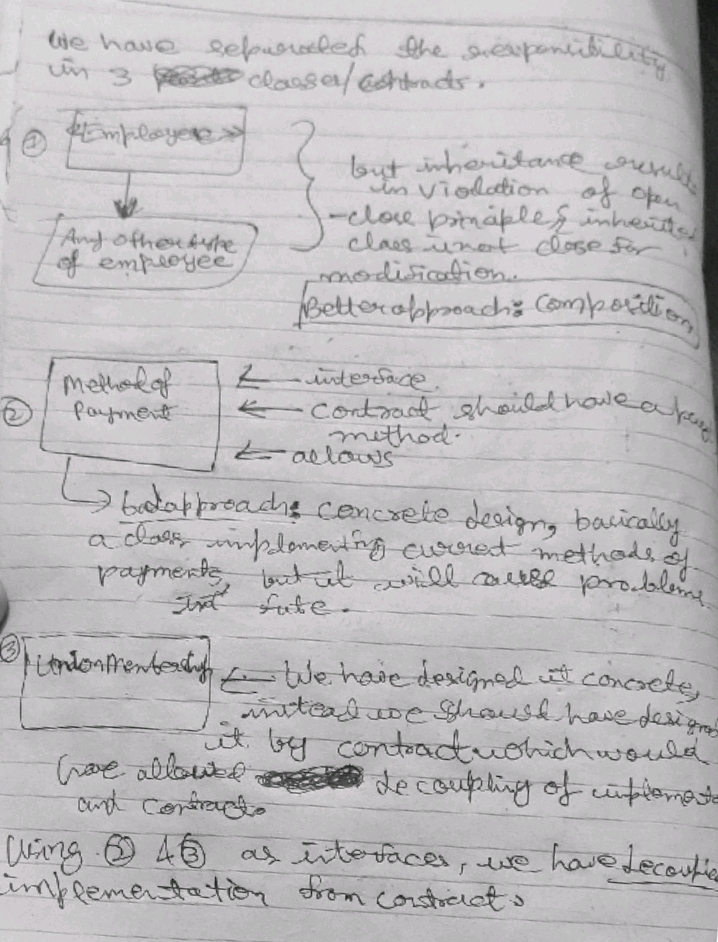 We have seperated the responsibility
in 3 classes/contracts.
① <Employee>
Any other type
of employee
but inheritance results
in violation of open
-close principle & inherited
class is not close for
modification.
Better approach: Composition
② Method of
Payment
← interface
← contract should have a pay
method.
← allows
→ bad approach: concrete design, basically
a class implementing current methods of
payments, but it will cause problems
in
③ UnionMembership
← We have designed it concrete,
instead we should have designed
it by contract which would
have allowed decoupling of
and contract.
Using ② & ③ as interfaces, we have
implementation from contract.